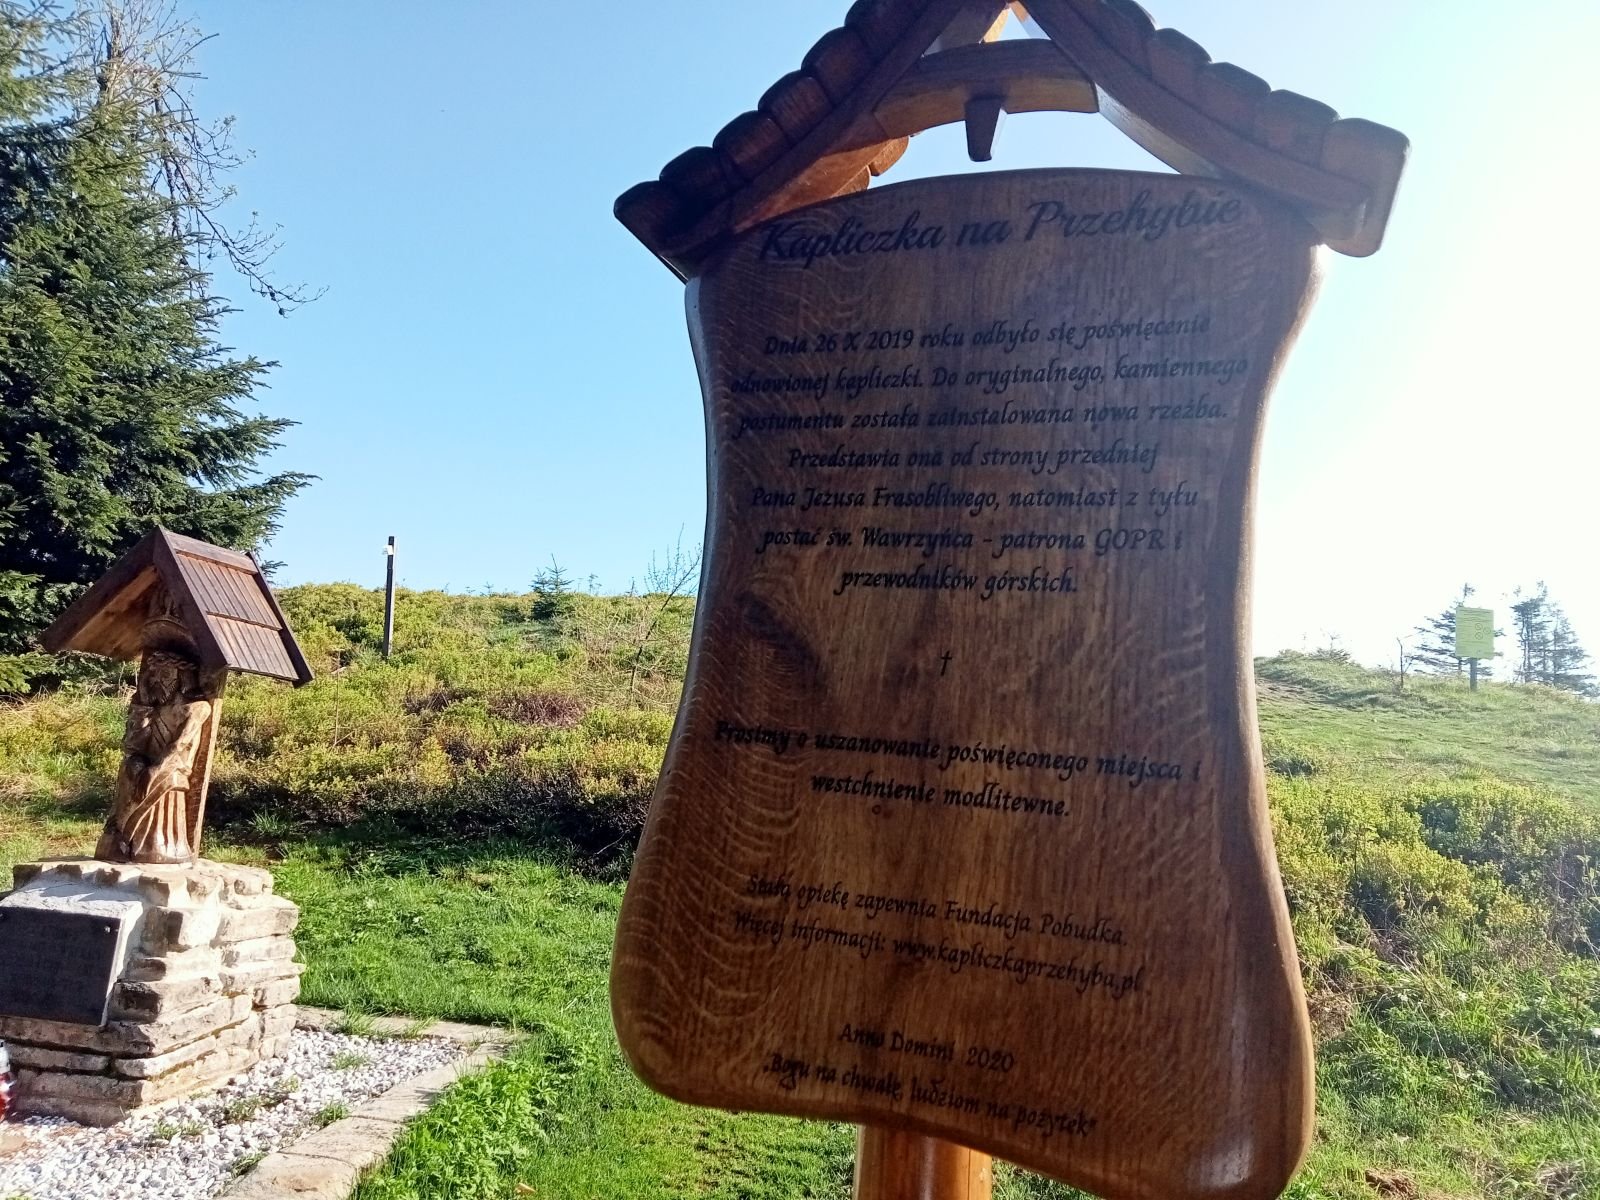 Kapliczka na Przehybie
Dnia 26 X 2019 roku odbyło się poświęcenie
odnowionej kapliczki. Do oryginalnego, kamiennego
postumentu została zainstalowana nowa rzeźba.
Przedstawia ona od strony przedniej
Pana Jezusa Frasobliwego, natomiast z tyłu
postać św. Wawrzyńca - patrona GOPR i
przewodników górskich.
†
Prosimy o uszanowanie poświęconego miejsca i
westchnienie modlitewne.
Stałą opiekę zapewnia Fundacja Pobudka.
Więcej informacji: www.kapliczkaprzehyba.pl
Anno Domini 2020
„Bogu na chwałę, ludziom na pożytek"